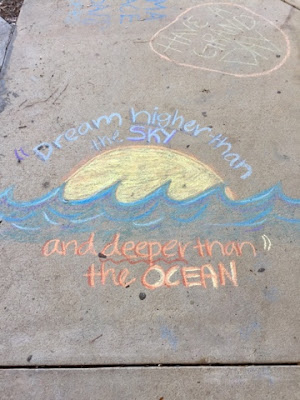 HAVE
A GRAND
DAY
"Dream higher than
the SKY
and deeper than"
the OCEAN